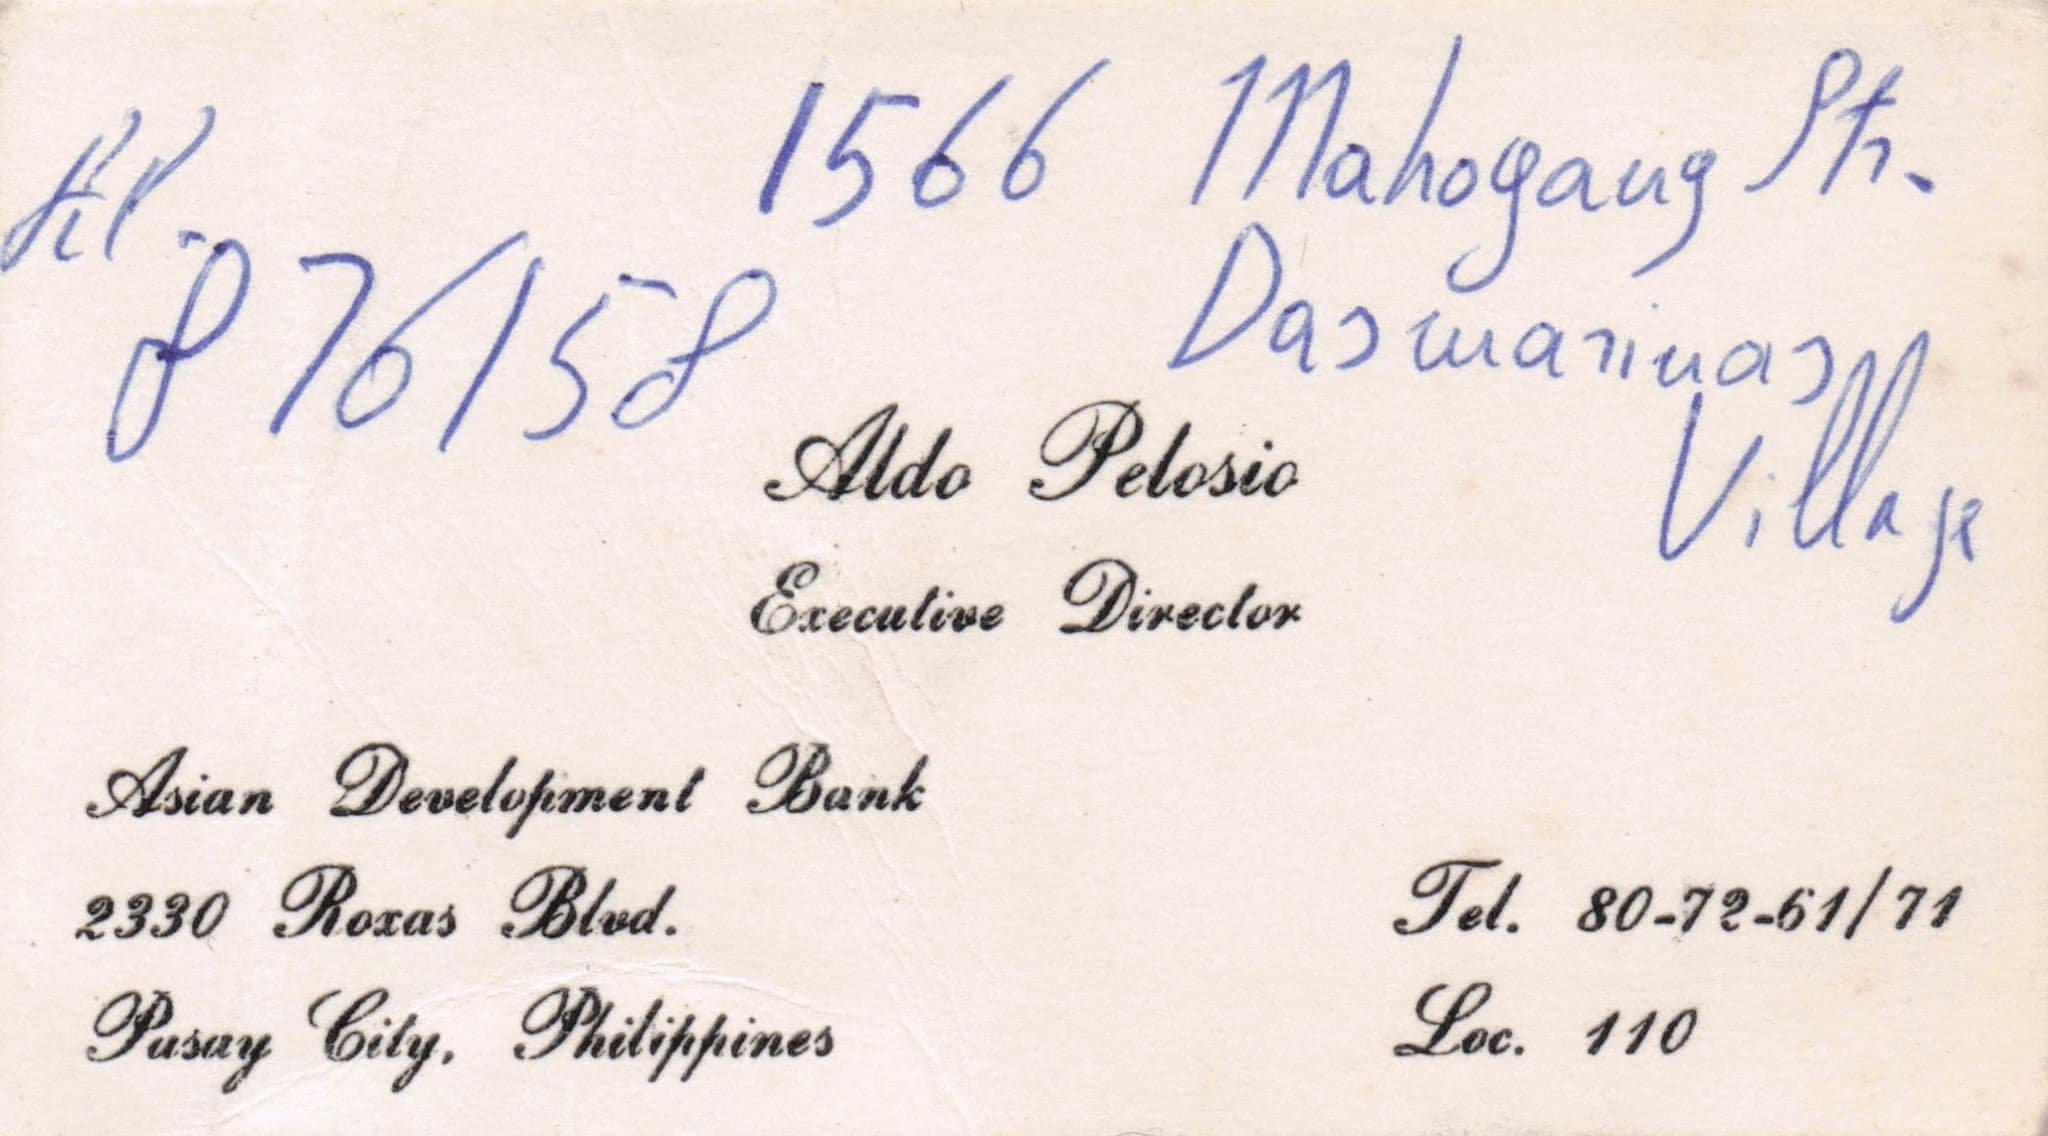 1566 Mahogany Str.
Dasmarinas
Village
876158
Aldo Pelosio
Executive Director
Asian Development Bank
2330 Roxas Blvd.
Pasay City, Philippines
Tel. 80-72-61/71
Loc. 110